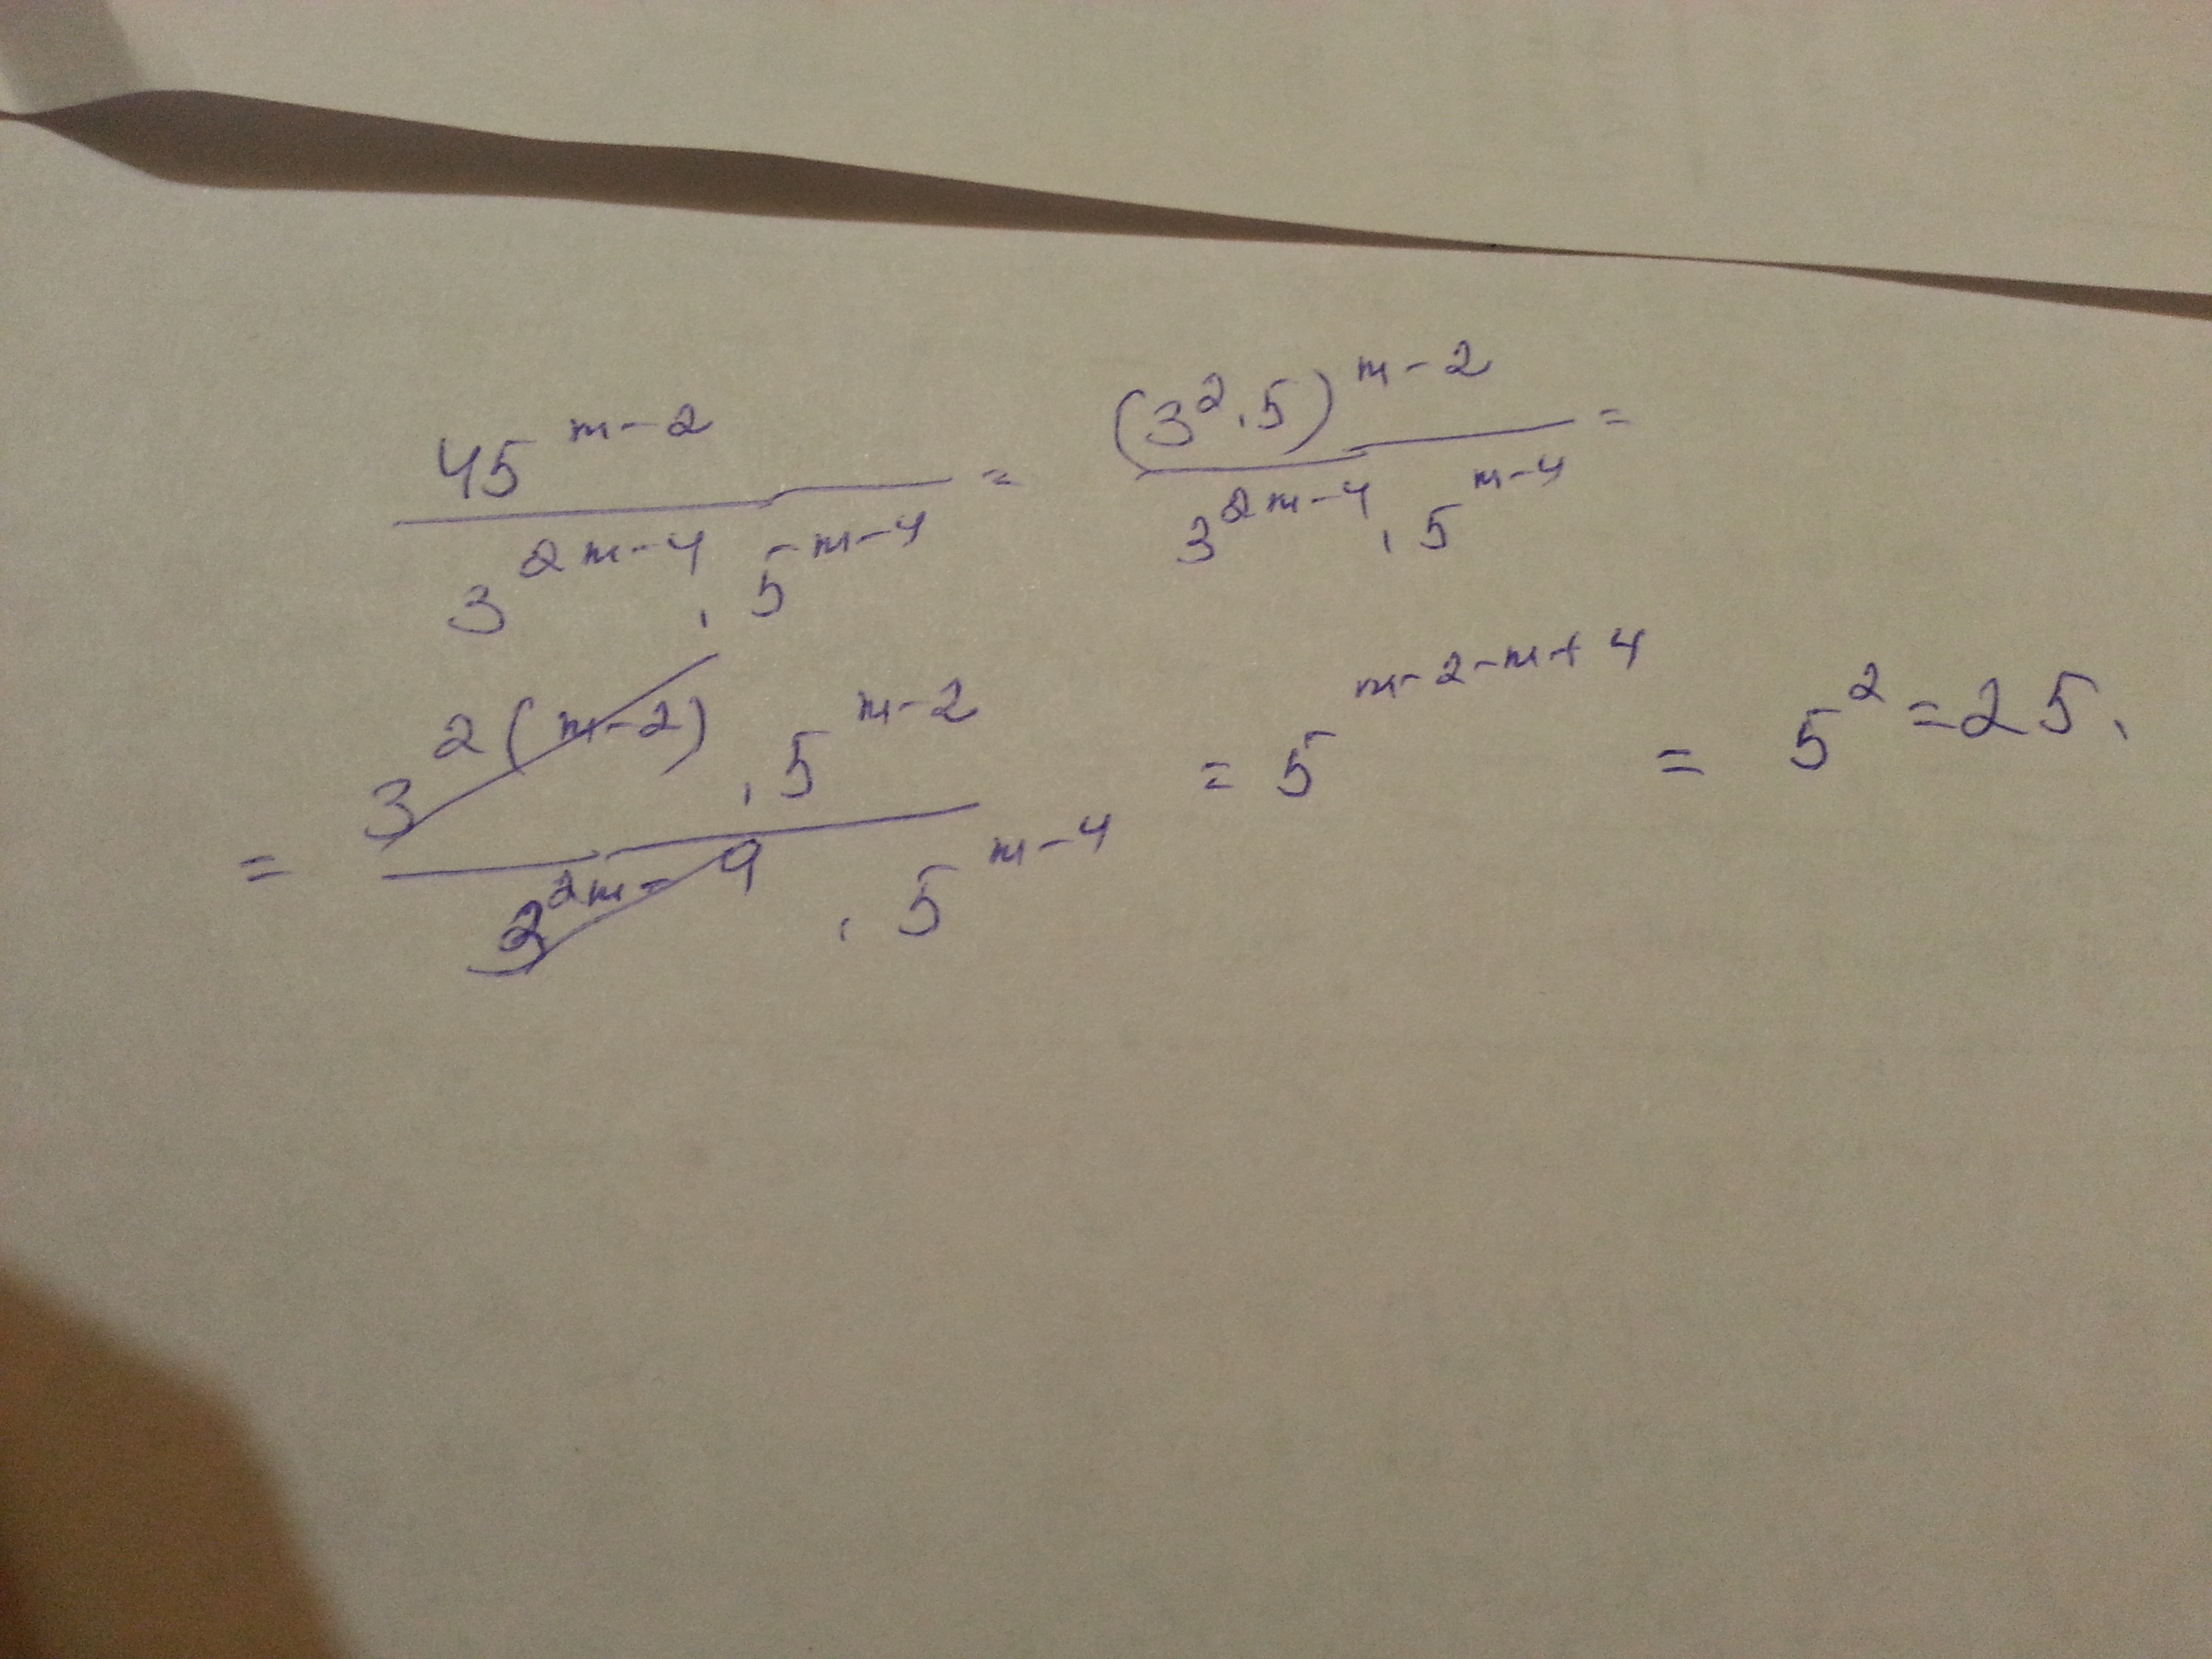 45^{m-2} / (3^{2m-4} · 5^{m-4}) = (3^2 · 5)^{m-2} / (3^{2m-4} · 5^{m-4}) =
= 3^{2(m-2)} · 5^{m-2} / (3^{2m-4} · 5^{m-4}) = 5^{m-2-m+4} = 5^2 = 25.